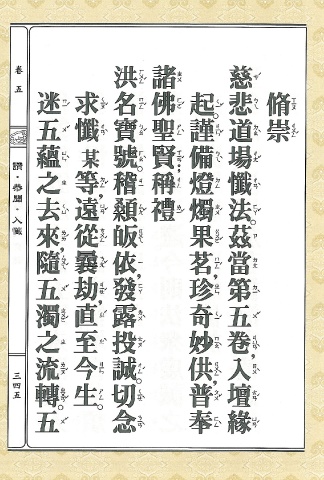 脩崇
慈悲道場懺法。茲當第五卷入壇緣
起。謹備燈燭果茗珍奇妙供，普奉
諸佛聖賢，稱禮
洪名寶號。稽顙皈依，發露投誠。切念
求懺某等，遠從曩劫，直至今生。
迷五蘊之去來，隨五濁之流轉。五
卷五
讚·恭聞·入懺
三四五